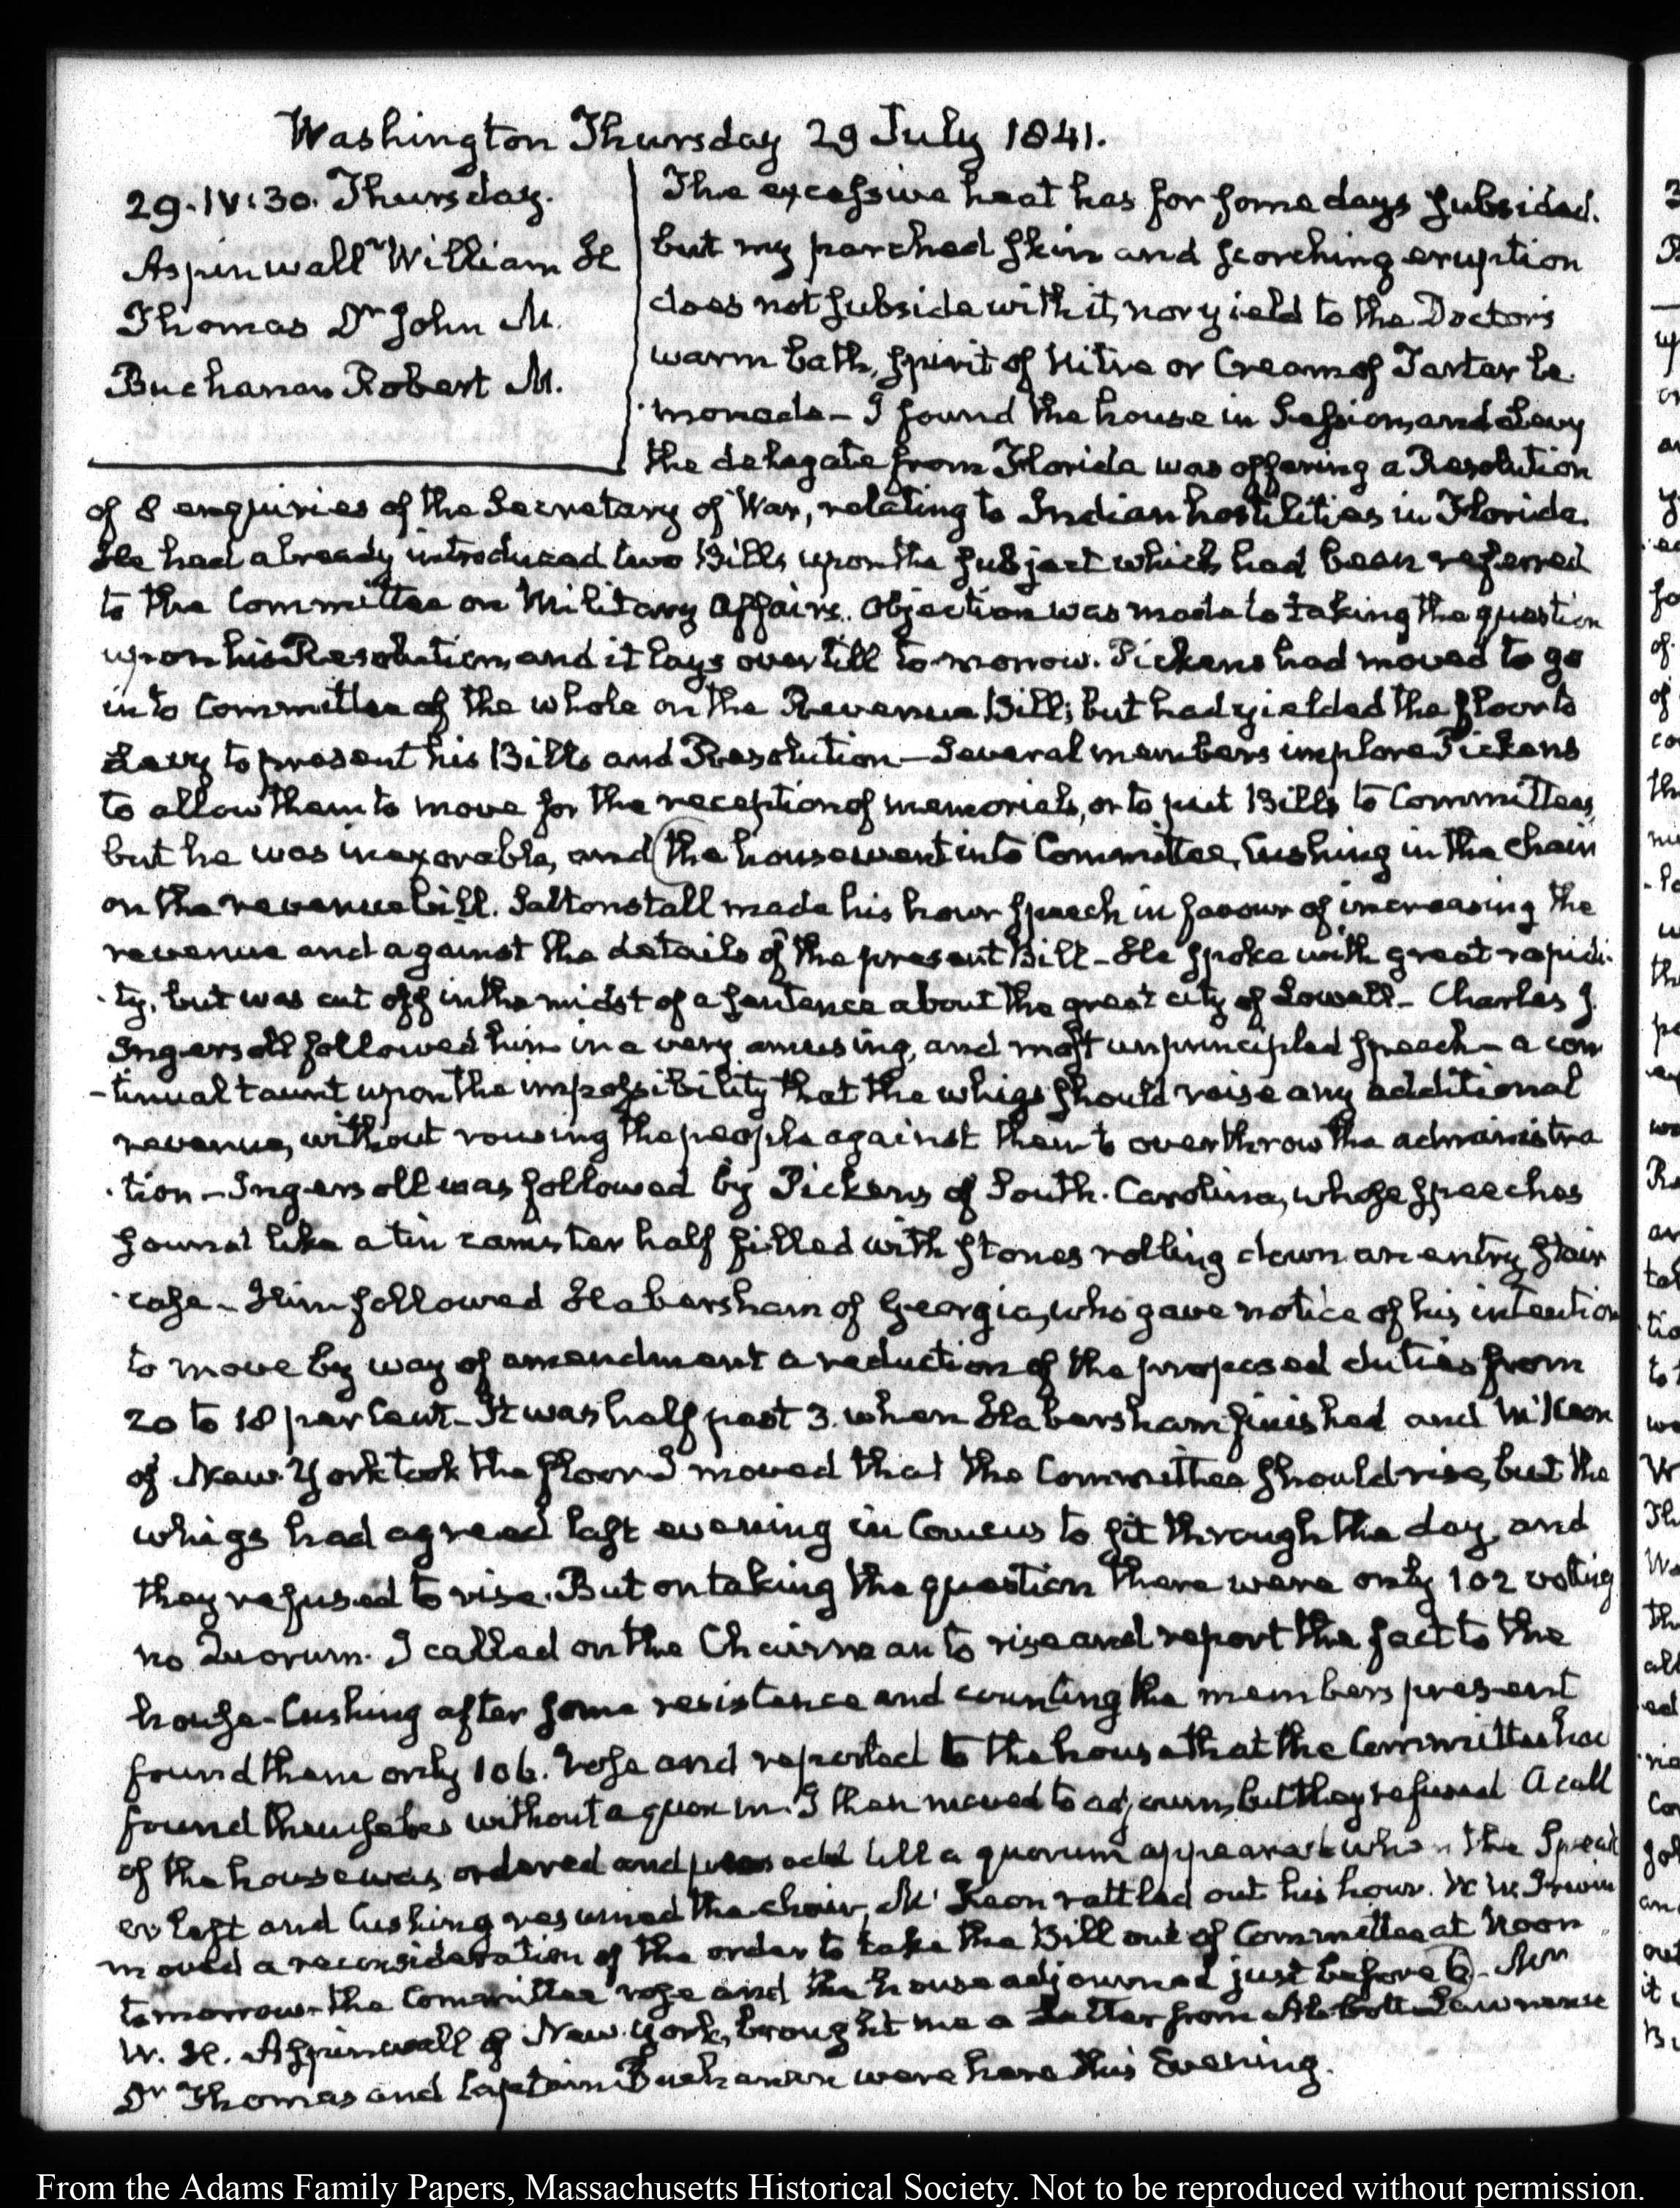 Washington Thursday 29 July 1841.
29. IV:30. Thursday.
Aspinwall William H
Thomas Dr John M.
Buchanan Robert M.
The excessive heat has for some days subsided.
but my parched skin and scorching eruption
does not subside with it, nor yield to the Doctors
warm bath, spirit of Nitre or Cream of Tartar le-
monade - I found the house in Session, and Levy
the delegate from Florida was offering a Resolution
of 8 enquiries of the Secretary of War, relating to Indian hostilities in Florida.
He had already introduced two Bills upon the subject which had been referred
to the Committee on Military Affairs. Objection was made to taking the question
upon his Resolution, and it lays over till to-morrow. Pickens had moved to go
into Committee of the whole on the Revenue Bill; but had yielded the floor to
Levy to present his Bills and Resolution - Several members implore Pickens
to allow them to move for the reception of memorials, or to put Bills to Committees,
but he was inexorable, and the house went into Committee, Cushing in the Chair
on the revenue bill. Saltonstall made his hour speech in favour of increasing the
revenue and against the details of the present Bill - He spoke with great rapidi-
-ty, but was cut off in the midst of a sentence about the great city of Lowell - Charles J.
Ingersoll followed him in a very amusing, and most unprincipled speech - a con
-tinual taunt upon the impossibility that the whigs should raise any additional
revenue, without rousing the people against them to overthrow the administra
-tion - Ingersoll was followed by Pickens of South-Carolina, whose speeches
sound like a tin canister half filled with stones rolling down an entry stair
-case - Him followed Habersham of Georgia, who gave notice of his intention
to move by way of amendment a reduction of the proposed duties from
20 to 18 per Cent - It was half past 3. when Habersham finished and M'Keon
of New-York took the floor I moved that the Committee should rise, but the
whigs had agreed last evening in Caucus to sit through the day, and
they refused to rise. But on taking the question there were only 102 voting
no Quorum. I called on the Chairman to rise and report the fact to the
house - Cushing after some resistance and counting the members present
found them only 106. rose and reported to the house that the Committee had
found themselves without a quorum. I then moved to adjourn, but they refused A call
of the house was ordered and till a quorum appeared when the Speak
er left and Cushing resumed the chair, M'Keon rattled out his hour. W W Irwin
moved a reconsideration of the order to take the Bill out of Committee at Noon
tomorrow - the Committee rose and the house adjourned just before 6 -
W. H. Aspinwall of New-York, brought me a Letter from Abbott Lawrence
Dr Thomas and Captain Buchanan were here this Evening.
From the Adams Family Papers, Massachusetts Historical Society. Not to be reproduced without permission.